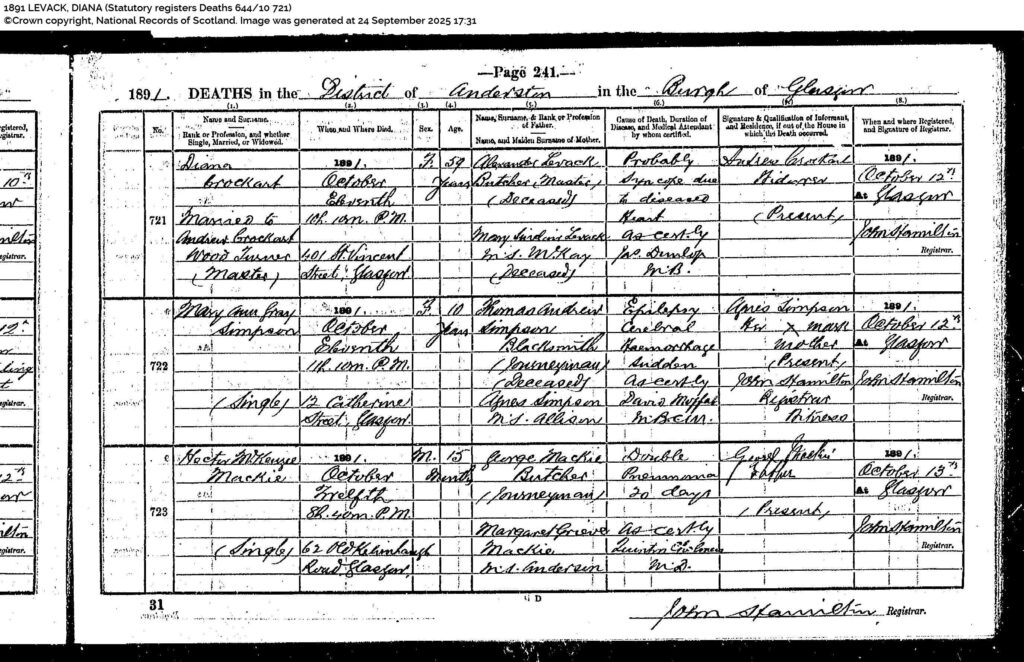 1891 LEVACK, DIANA (Statutory registers Deaths 644/10 721)
©Crown copyright, National Records of Scotland. Image was generated at 24 September 2025 17:31
—Page 241.—
1891. DEATHS in the District of Anderston in the Burgh of Glasgow
(1.) (2.) (3.) (4.) (5.) (6.) (8.)
No.
Name and Surname.
Rank or Profession, and whether Single, Married, or Widowed.
When and Where Died.
Sex.
Age.
Name, Surname, & Rank or Profession of Father.
Name, and Maiden Surname of Mother.
Cause of Death, Duration of Disease, and Medical Attendant by whom certified.
Signature & Qualification of Informant, and Residence, if out of the House in which the Death occurred.
When and where Registered, and Signature of Registrar.
721
Diana
Crockart
Married to
Andrew Crockart
Wood Turner
(Master)
1891.
October
Eleventh
10h. 10m. P.M.
401 St. Vincent
Street Glasgow
F.
59
Years
Alexander Levack
Butcher (Master)
(Deceased)
Mary Levack
M.S. McKay
(Deceased)
Probably
Syncope due
to diseased
Heart
As certfy
Jas. Dunlop
M.B.
Andrew Crockart
Widower
(Present)
1891.
October 12th
At Glasgow
John Hamilton
Registrar.
722
Mary Ann Gray
Simpson
(Single)
1891.
October
Eleventh
11h. 10m. P.M.
12 Catherine
Street Glasgow
F.
10
Years
Thomas Andrew
Simpson
Blacksmith
(Journeyman)
(Deceased)
Agnes Simpson
M.S. Allison
Epilepsy
Cerebral
Haemorrhage
Sudden
As certfy
David Moffat
M.B.C.M.
Agnes Simpson
Her x mark
Mother
(Present)
John Hamilton
Registrar
Witness
1891.
October 12th
At Glasgow
John Hamilton
Registrar.
723
Hector McKenzie
Mackie
(Single)
1891.
October
Twelfth
8h. 40m. P.M.
62 Old
Road Glasgow
M.
15
Months
George Mackie
Butcher
(Journeyman)
Margaret Grieve
Mackie
M.S. Anderson
Double
Pneumonia
20 days
As certfy
Quintin
M.D.
George Mackie
Father
(Present)
1891.
October 13th
At Glasgow
John Hamilton
Registrar.
31
D
John Hamilton Registrar.